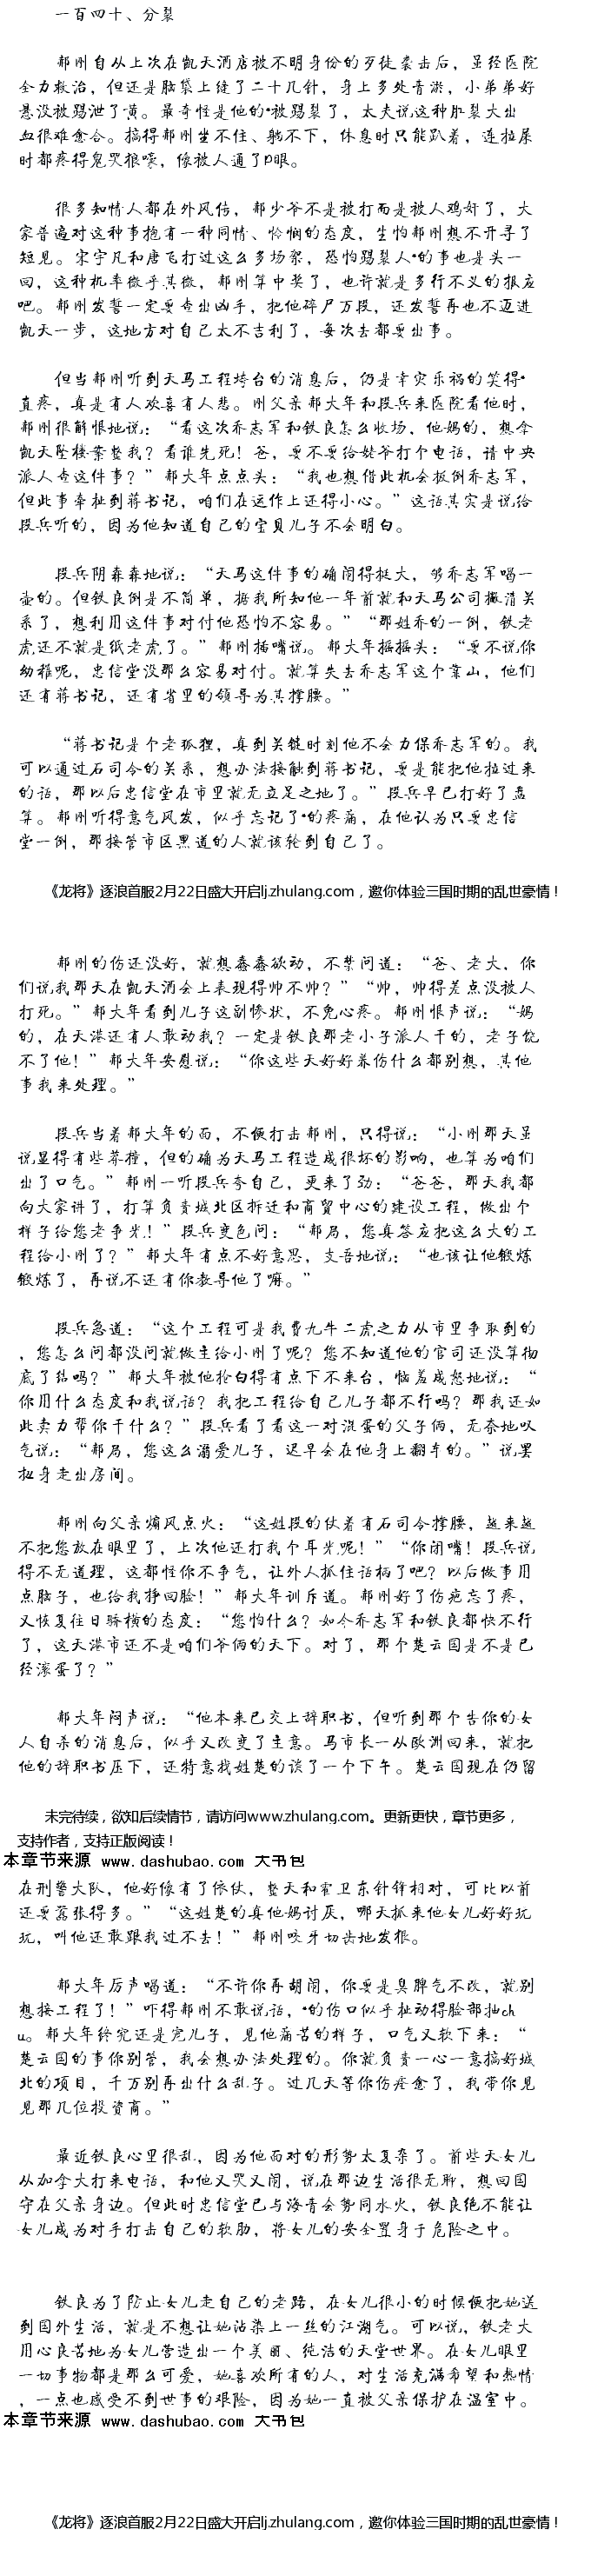 一百四十、分裂
郝刚自从上次在凯天酒店被不明身份的歹徒袭击后，虽经医院
全力救治，但还是脑袋上缝了二十几针，身上多处青淤，小弟弟好
悬没被踢泄了黄。最奇怪是他的•被踢裂了，大夫说这种肛裂大出
血很难愈合。搞得郝刚坐不住、躺不下，休息时只能趴着，连拉屎
时都疼得鬼哭狼嚎，像被人通了P眼。
很多知情人都在外风传，郝少爷不是被打而是被人鸡奸了，大
家普遍对这种事抱有一种同情、怜悯的态度，生怕郝刚想不开寻了
短见。宋宇凡和唐飞打过这么多场架，恐怕踢裂人•的事也是头一
回，这种机率微乎其微，郝刚算中奖了，也许就是多行不义的报应
吧。郝刚发誓一定要查出凶手，把他碎尸万段，还发誓再也不迈进
凯天一步，这地方对自己太不吉利了，每次去都要出事。
但当郝刚听到天马工程垮台的消息后，仍是幸灾乐祸的笑得•
直疼，真是有人欢喜有人悲。刚父亲郝大年和段兵来医院看他时，
郝刚很解恨地说：“看这次乔志军和铁良怎么收场，他妈的，想拿
凯天坠楼案整我？看谁先死！爸，要不要给姥爷打个电话，请中央
派人查这件事？”郝大年点点头：“我也想借此机会扳倒乔志军，
但此事牵扯到蒋书记，咱们在运作上还得小心。”这话其实是说给
段兵听的，因为他知道自己的宝贝儿子不会明白。
段兵阴森森地说：“天马这件事的确闹得挺大，够乔志军喝一
壶的。但铁良倒是不简单，据我所知他一年前就和天马公司撇清关
系了，想利用这件事对付他恐怕不容易。”“那姓乔的一倒，铁老
虎还不就是纸老虎了。”郝刚插嘴说。郝大年摇摇头：“要不说你
幼稚呢，忠信堂没那么容易对付。就算失去乔志军这个靠山，他们
还有蒋书记，还有省里的领导为其撑腰。”
“蒋书记是个老狐狸，真到关键时刻他不会力保乔志军的。我
可以通过石司令的关系，想办法接触到蒋书记，要是能把他拉过来
的话，那以后忠信堂在市里就无立足之地了。”段兵早已打好了盘
算。郝刚听得意气风发，似乎忘记了•的疼痛，在他认为只要忠信
堂一倒，那接管市区黑道的人就该轮到自己了。
《龙将》逐浪首服2月22日盛大开启lj.zhulang.com，邀你体验三国时期的乱世豪情！
郝刚的伤还没好，就想蠢蠢欲动，不禁问道：“爸、老大，你
们说我那天在凯天酒会上表现得帅不帅？”“帅，帅得差点没被人
打死。”郝大年看到儿子这副惨状，不免心疼。郝刚恨声说：“妈
的，在天港还有人敢动我？一定是铁良那老小子派人干的，老子饶
不了他！”郝大年安慰说：“你这些天好好养伤什么都别想，其他
事我来处理。”
段兵当着郝大年的面，不便打击郝刚，只得说：“小刚那天虽
说显得有些莽撞，但的确为天马工程造成很坏的影响，也算为咱们
出了口气。”郝刚一听段兵夸自己，更来了劲：“爸爸，那天我都
向大家讲了，打算负责城北区拆迁和商贸中心的建设工程，做出个
样子给您老争光！”段兵变色问：“郝局，您真答应把这么大的工
程给小刚了？”郝大年有点不好意思，支吾地说：“也该让他锻炼
锻炼了，再说不还有你教导他了嘛。”
段兵急道：“这个工程可是我费九牛二虎之力从市里争取到的
，您怎么问都没问就做主给小刚了呢？您不知道他的官司还没算彻
底了结吗？”郝大年被他抢白得有点下不来台，恼羞成怒地说：“
你用什么态度和我说话？我把工程给自己儿子都不行吗？那我还如
此卖力帮你干什么？”段兵看了看这一对混蛋的父子俩，无奈地叹
气说：“郝局，您这么溺爱儿子，迟早会在他身上翻车的。”说罢
扭身走出房间。
郝刚向父亲煽风点火：“这姓段的仗着有石司令撑腰，越来越
不把您放在眼里了，上次他还打我个耳光呢！”“你闭嘴！段兵说
得不无道理，这都怪你不争气，让外人抓住话柄了吧？以后做事用
点脑子，也给我挣回脸！”郝大年训斥道。郝刚好了伤疤忘了疼，
又恢复往日骄横的态度：“您怕什么？如今乔志军和铁良都快不行
了，这天港市还不是咱们爷俩的天下。对了，那个楚云国是不是已
经滚蛋了？”
郝大年闷声说：“他本来已交上辞职书，但听到那个告你的女
人自杀的消息后，似乎又改变了主意。马市长一从欧洲回来，就把
他的辞职书压下，还特意找姓楚的谈了一个下午。楚云国现在仍留
未完待续，欲知后续情节，请访问www.zhulang.com。更新更快，章节更多，
支持作者，支持正版阅读！
本章节来源 www.dashubao.com 大书包
在刑警大队，他好像有了依仗，整天和霍卫东针锋相对，可比以前
还要嚣张得多。”“这姓楚的真他妈讨厌，哪天抓来他女儿好好玩
玩，叫他还敢跟我过不去！”郝刚咬牙切齿地发狠。
郝大年厉声喝道：“不许你再胡闹，你要是臭脾气不改，就别
想接工程了！”吓得郝刚不敢说话，•的伤口似乎扯动得脸部抽ch
u。郝大年终究还是宠儿子，见他痛苦的样子，口气又软下来：“
楚云国的事你别管，我会想办法处理的。你就负责一心一意搞好城
北的项目，千万别再出什么乱子。过几天等你伤痊愈了，我带你见
见那几位投资商。”
最近铁良心里很乱，因为他面对的形势太复杂了。前些天女儿
从加拿大打来电话，和他又哭又闹，说在那边生活很无聊，想回国
守在父亲身边。但此时忠信堂已与海青会势同水火，铁良绝不能让
女儿成为对手打击自己的软肋，将女儿的安全置身于危险之中。
铁良为了防止女儿走自己的老路，在女儿很小的时候便把她送
到国外生活，就是不想让她沾染上一丝的江湖气。可以说，铁老大
用心良苦地为女儿营造出一个美丽、纯洁的天堂世界。在女儿眼里
一切事物都是那么可爱，她喜欢所有的人，对生活充满希望和热情
，一点也感受不到世事的艰险，因为她一直被父亲保护在温室中。
本章节来源 www.dashubao.com 大书包
《龙将》逐浪首服2月22日盛大开启lj.zhulang.com，邀你体验三国时期的乱世豪情！